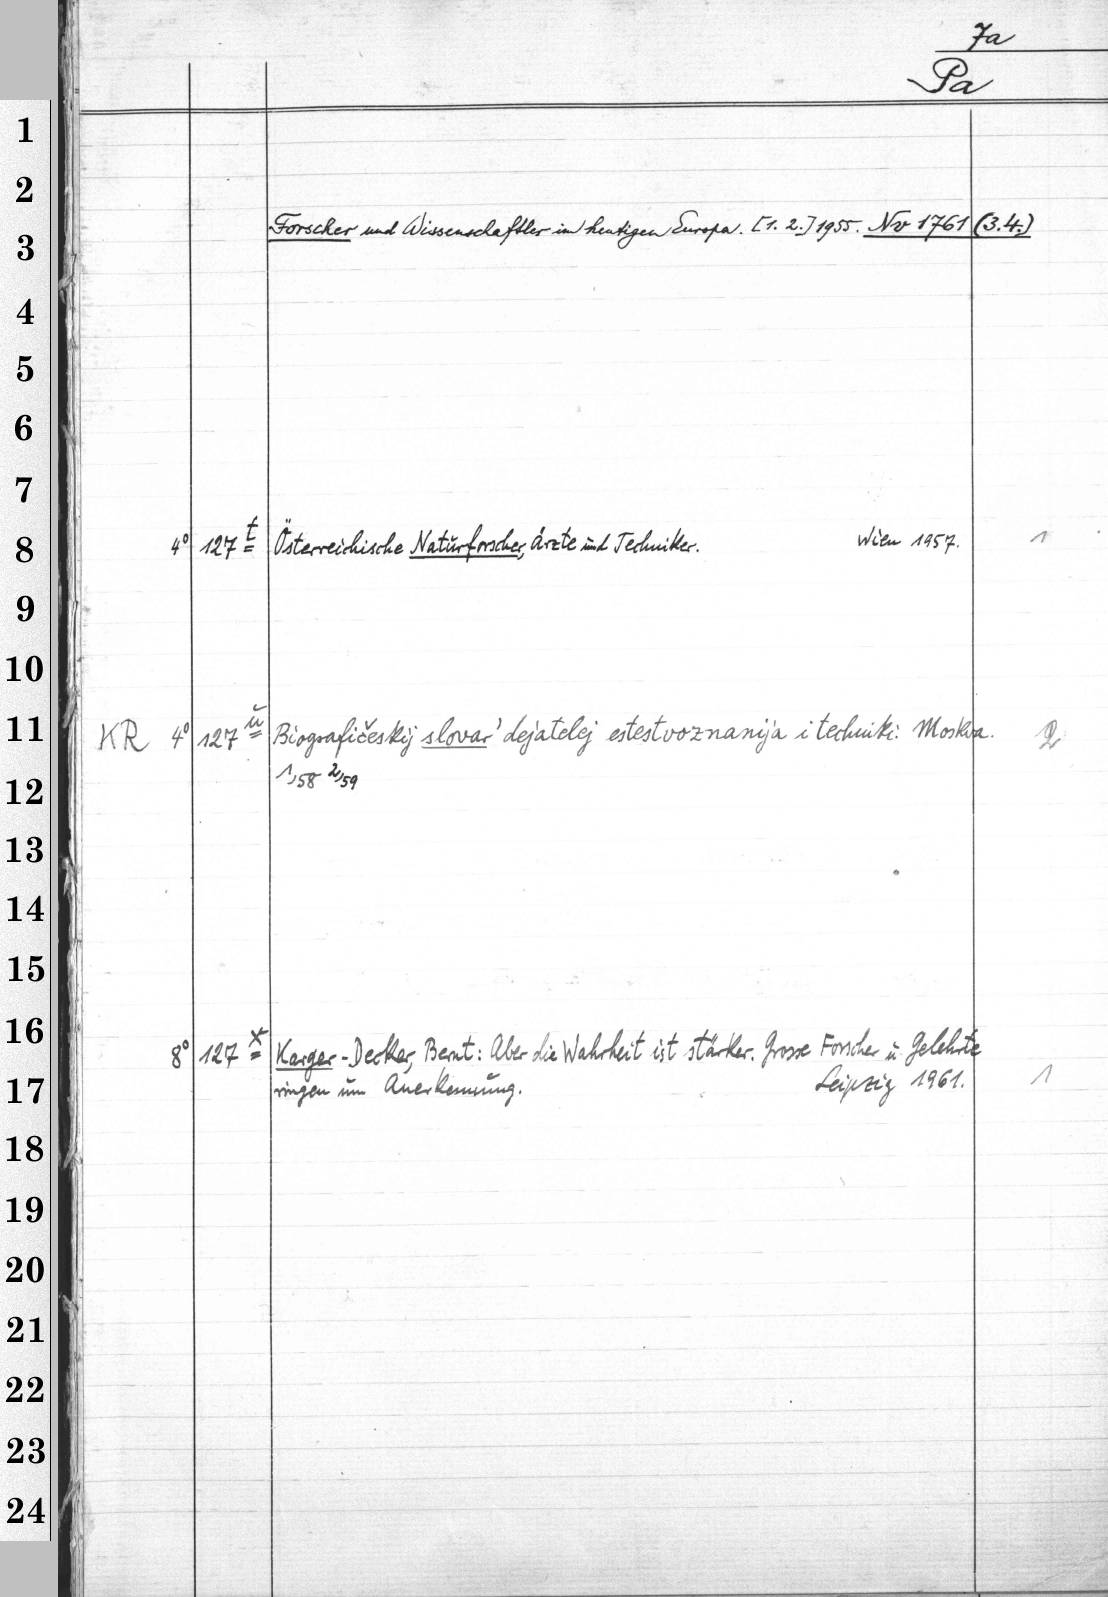 7a
Pa
1
2
Forscher und Wissenschaftler im heutigen Europa. [1. 2.] 1955. Nv 1761 (3.4.)
3
4
5
6
7
8 4° 127 t Österreichische Naturforscher, Ärzte und Techniker. Wien 1957. 1
9
10
11 KR 4° 127 u Biografičeskij slovar' dejatelej estestvoznanija i techniki: Moskva. 2
12 1,58 2,59
13
14
15
16 8° 127 x Karger-Decker, Bernt: Aber die Wahrheit ist stärker. Grosse Forscher u. Gelehrte
17 ringen um Anerkennung. Leipzig 1961. 1
18
19
20
21
22
23
24